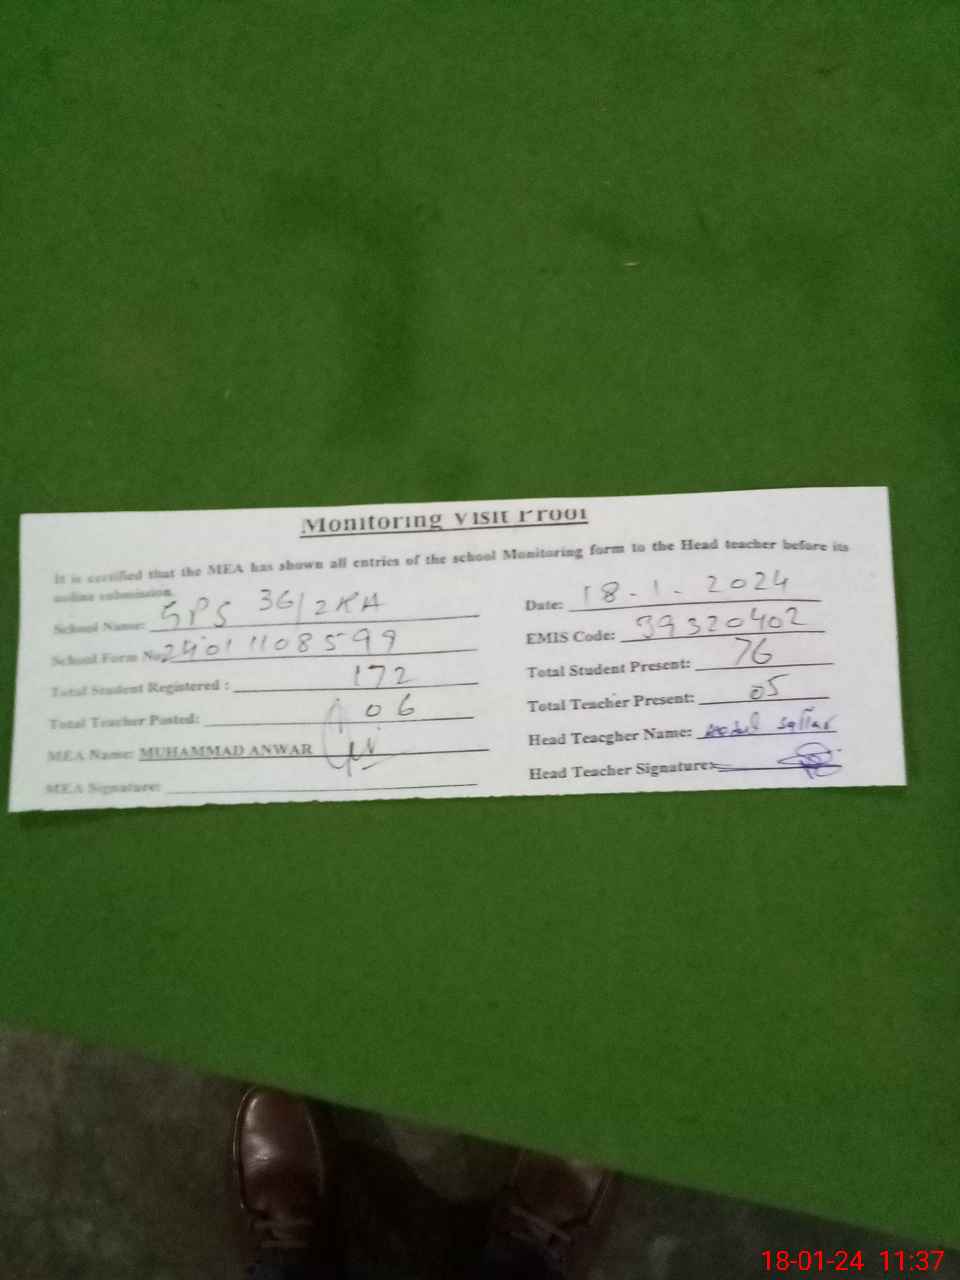 Monitoring Visit Proof
It is certified that the MEA has shown all entries of the school Monitoring form to the Head teacher before its
online submission.
School Name: GPS 36/2RA
Date: 18-1-2024
School Form No. 24011108599
EMIS Code: 39320402
Total Student Registered : 172
Total Student Present: 76
Total Teacher Posted: 06
Total Teacher Present: 05
MEA Name: MUHAMMAD ANWAR
Head Teacgher Name: Abdul Sattar
MEA Signature:
Head Teacher Signature:
18-01-24 11:37